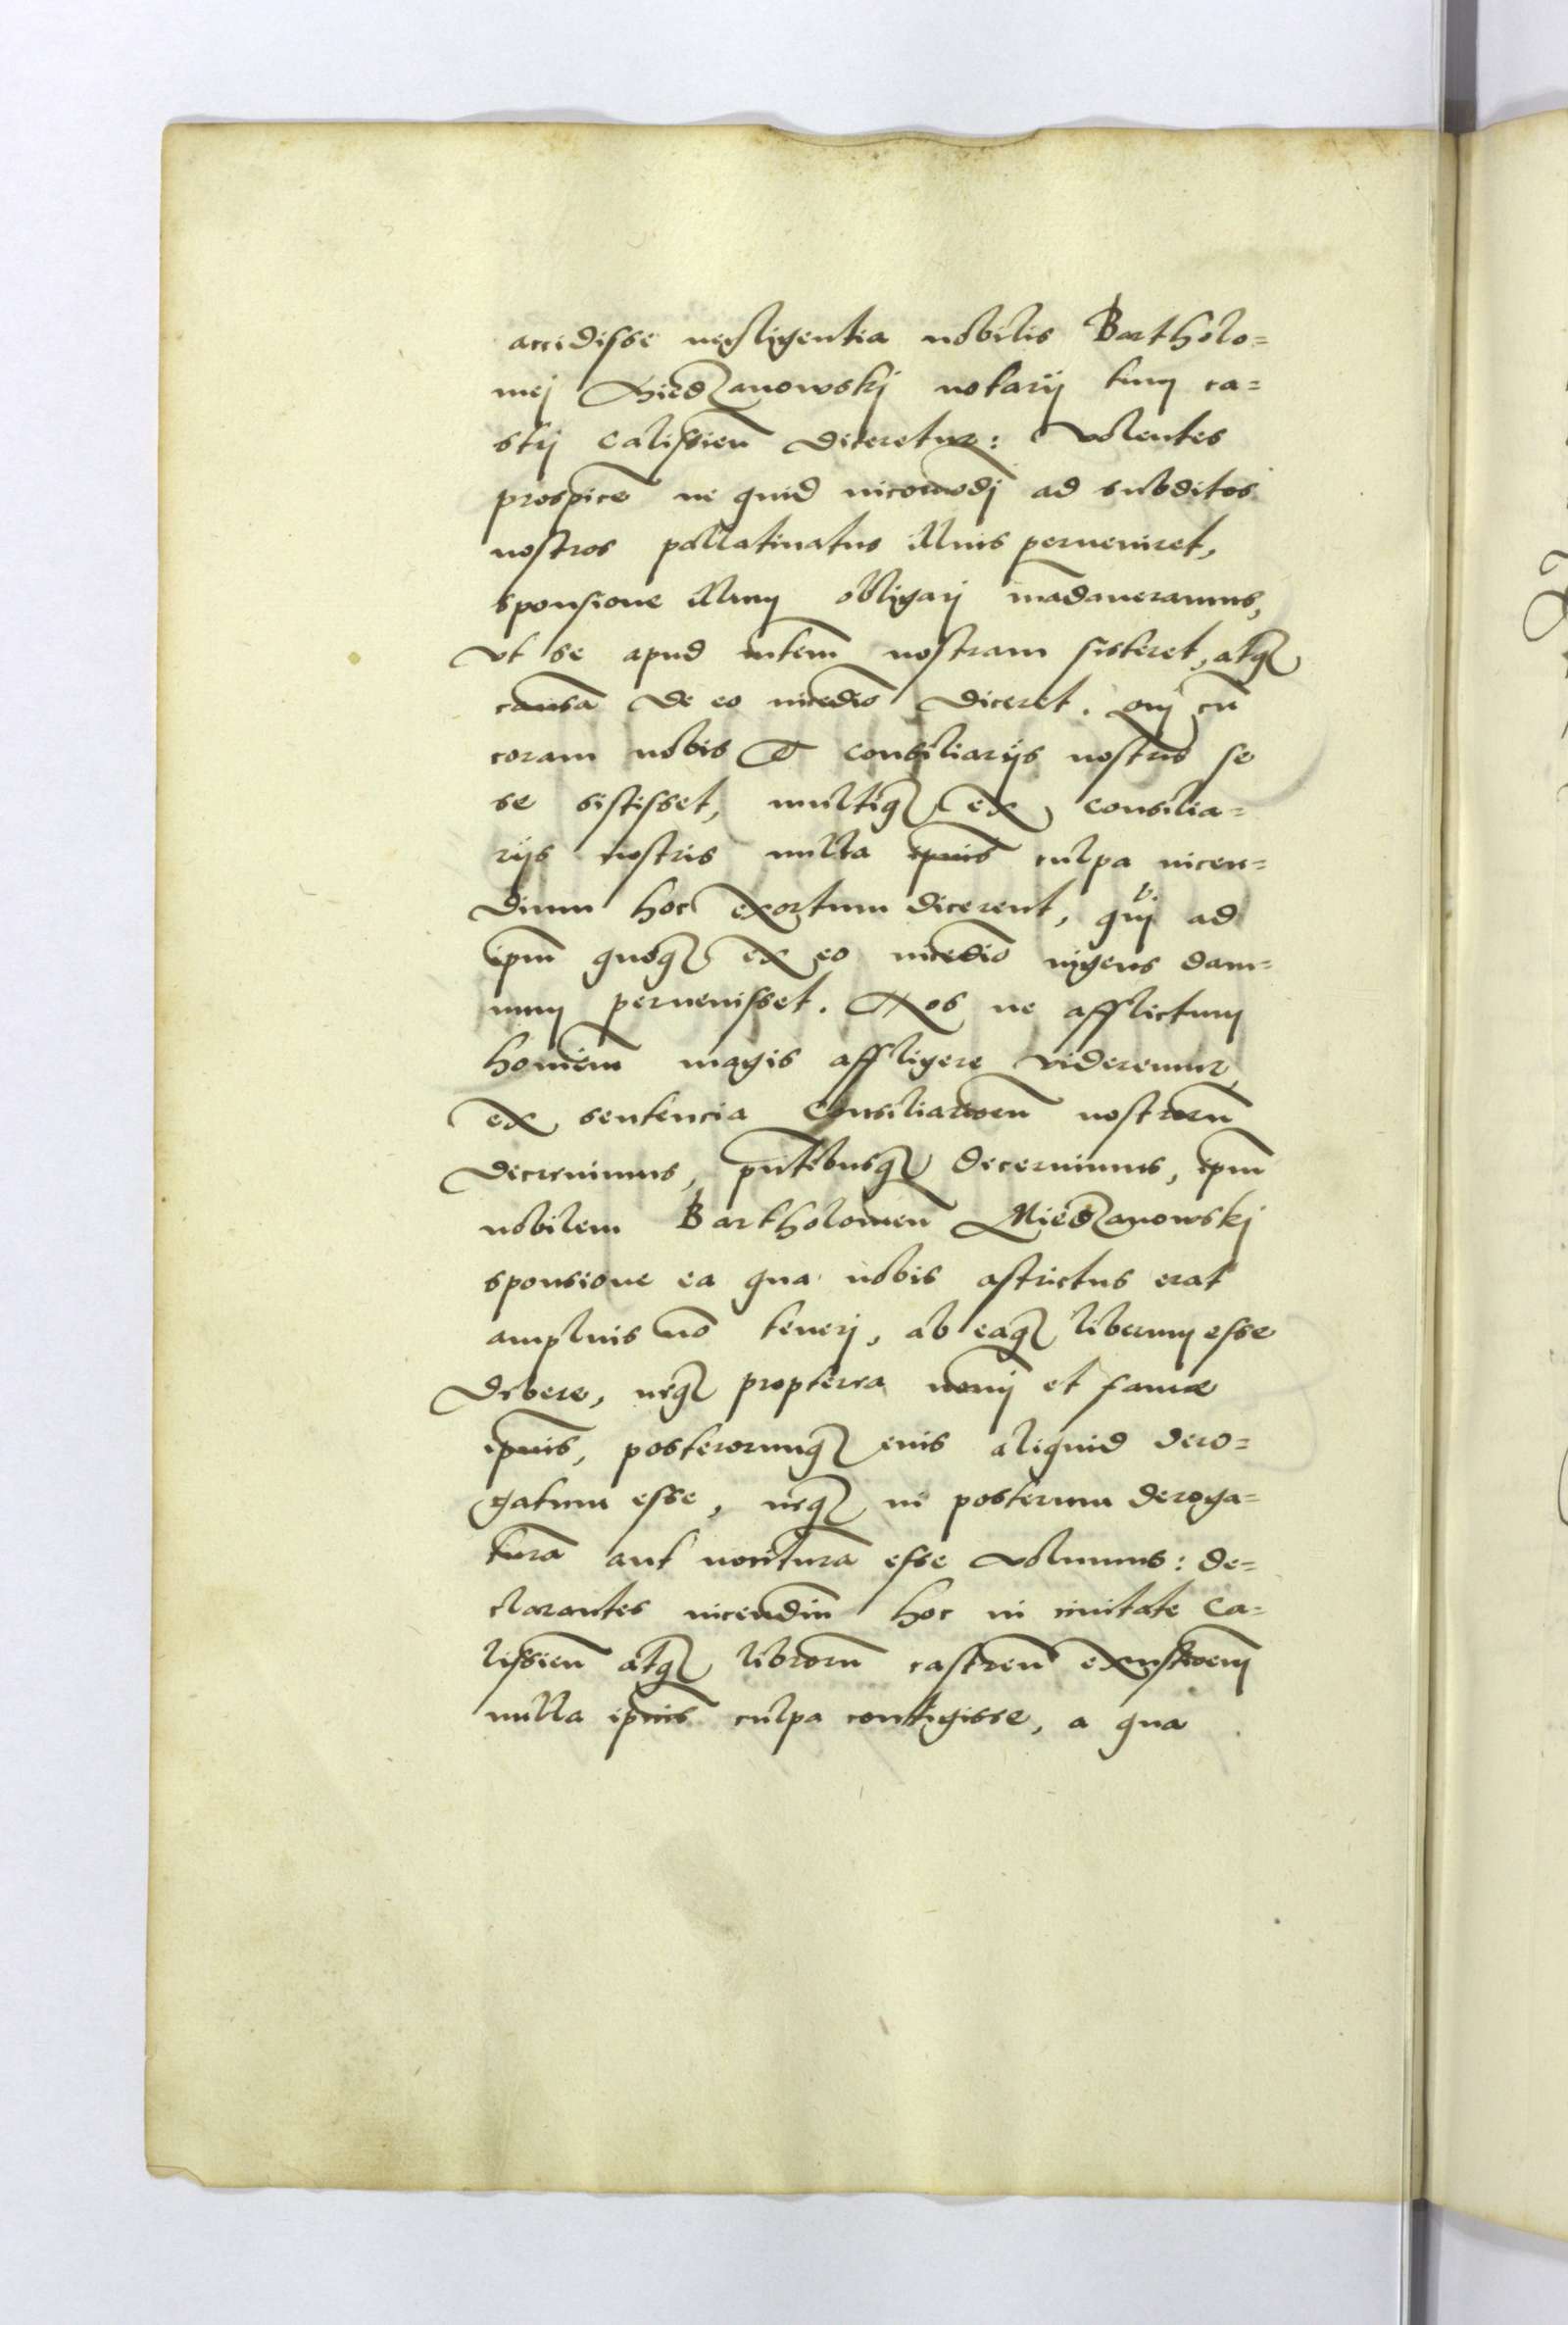 accidisse negligentia nobilis Bartholo=
mej Miedzanowskj notarij tum ca=
strj Calissien̄ diceretur: Volentes
prospicē ne quid incom̄odj ad subditos
nostros pallatinatus illius perueniret,
sponsione illum obligarj mādaueramus,
vt se apud m̄tem nostram sisteret, atq
causā de eo incēdio diceret. Qui cū
coram nobis et consiliarijs nostris se
se sistisset, multiq ex consilia=
rijs nostris nulla ip̄ius culpa incen=
dium hoc exortum dicerent, qui ad
ip̄m quoq ex eo incēdio ingens dam=
num peruenisset. Nos ne afflictum
hoīem magis affligere videremur,
ex sentencia Consiliarioru̅ nostroru̅
decreuimus, pn̄tibusq decernimus, ip̄m
nobilem Bartholomeū Miedzanowskj
sponsione ea qua nobis astrictus erat
amplius nō tenerj, ab eaq liberum esse
debere, neq propterea nom̄j et famæ
ip̄ius, posterorumq eius aliquid dero=
gatum esse, neq in posterum deroga=
turā aut nociturā esse volumus: de=
clarantes incendiū hoc in ciuitate Ca=
lissien̄ atq librorū castreñ exustioem̄
nulla ip̄ius culpa contigisse, a qua